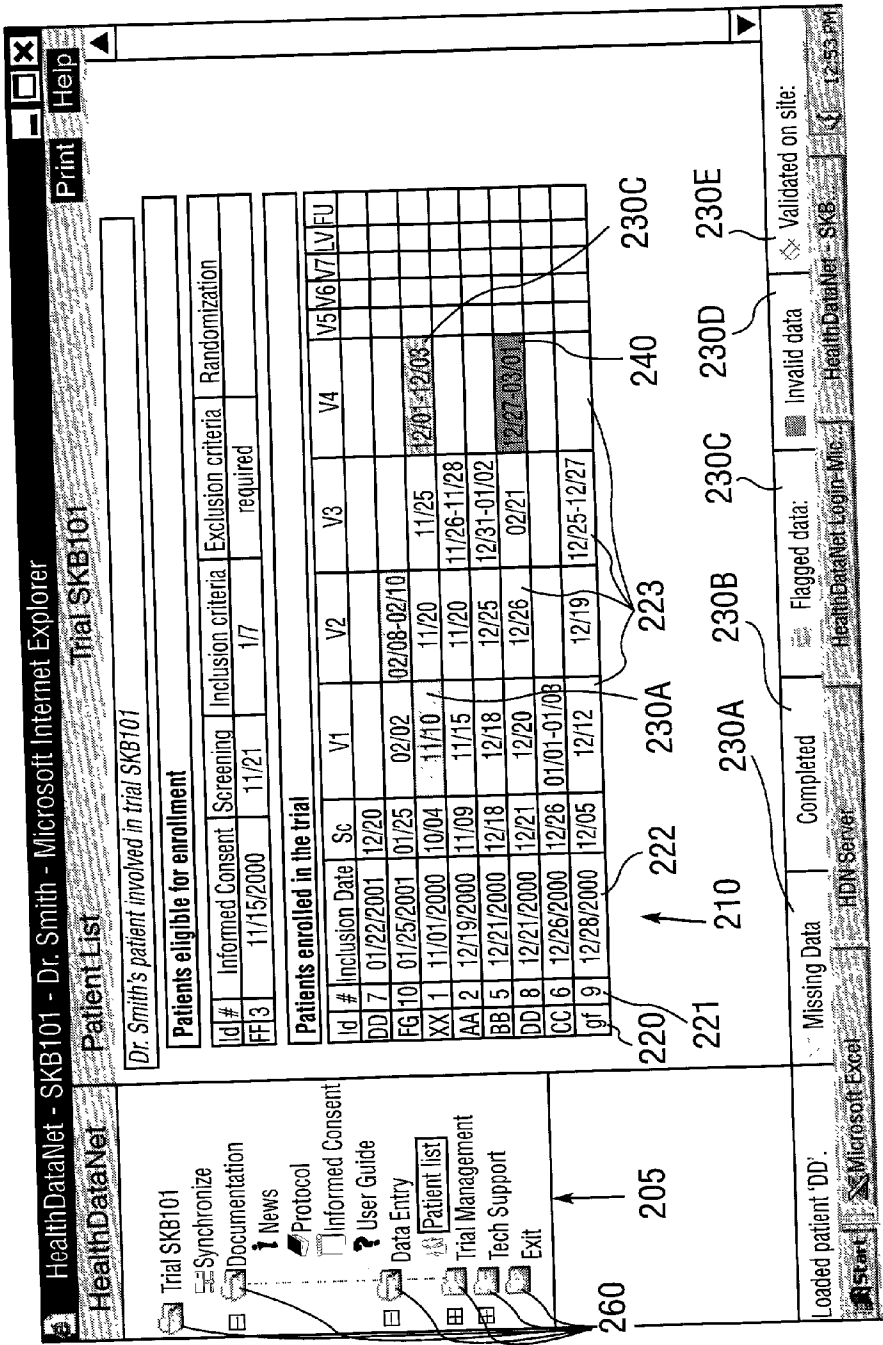 HealthDataNet - SKB101 - Dr. Smith - Microsoft Internet Explorer
HealthDataNet Patient List Trial SKB101 Print Help
Trial SKB101
Synchronize
Documentation
News
Protocol
Informed Consent
User Guide
Data Entry
Patient list
Trial Management
Tech Support
Exit
260
205
Dr. Smith's patient involved in trial SKB101
Patients eligible for enrollment
Id # Informed Consent Screening Inclusion criteria Exclusion criteria Randomization
FF 3 11/15/2000 11/21 1/7 required
Patients enrolled in the trial
Id # Inclusion Date Sc V1 V2 V3 V4 V5 V6 V7 LV FU
DD 7 01/22/2001 12/20
FG 10 01/25/2001 01/25 02/02 02/08-02/10
XX 1 11/01/2000 10/04 11/10 11/20 11/25 12/01-12/03
AA 2 12/19/2000 11/09 11/15 11/20 11/26-11/28
BB 5 12/21/2000 12/18 12/18 12/25 12/31-01/02
DD 8 12/21/2000 12/21 12/20 12/26 02/21 12/27-03/01
CC 6 12/26/2000 12/26 01/01-01/08
gf 9 12/28/2000 12/05 12/12 12/19 12/25-12/27
220
221
222
210
230A
223
240
230C
230A
230B
230C
230D
230E
Loaded patient 'DD'. Missing Data Completed Flagged data: Invalid data Validated on site:
Start Microsoft Excel HDN Server HealthDataNet Login-Mic... HealthDataNet - SKB... 12:53 PM